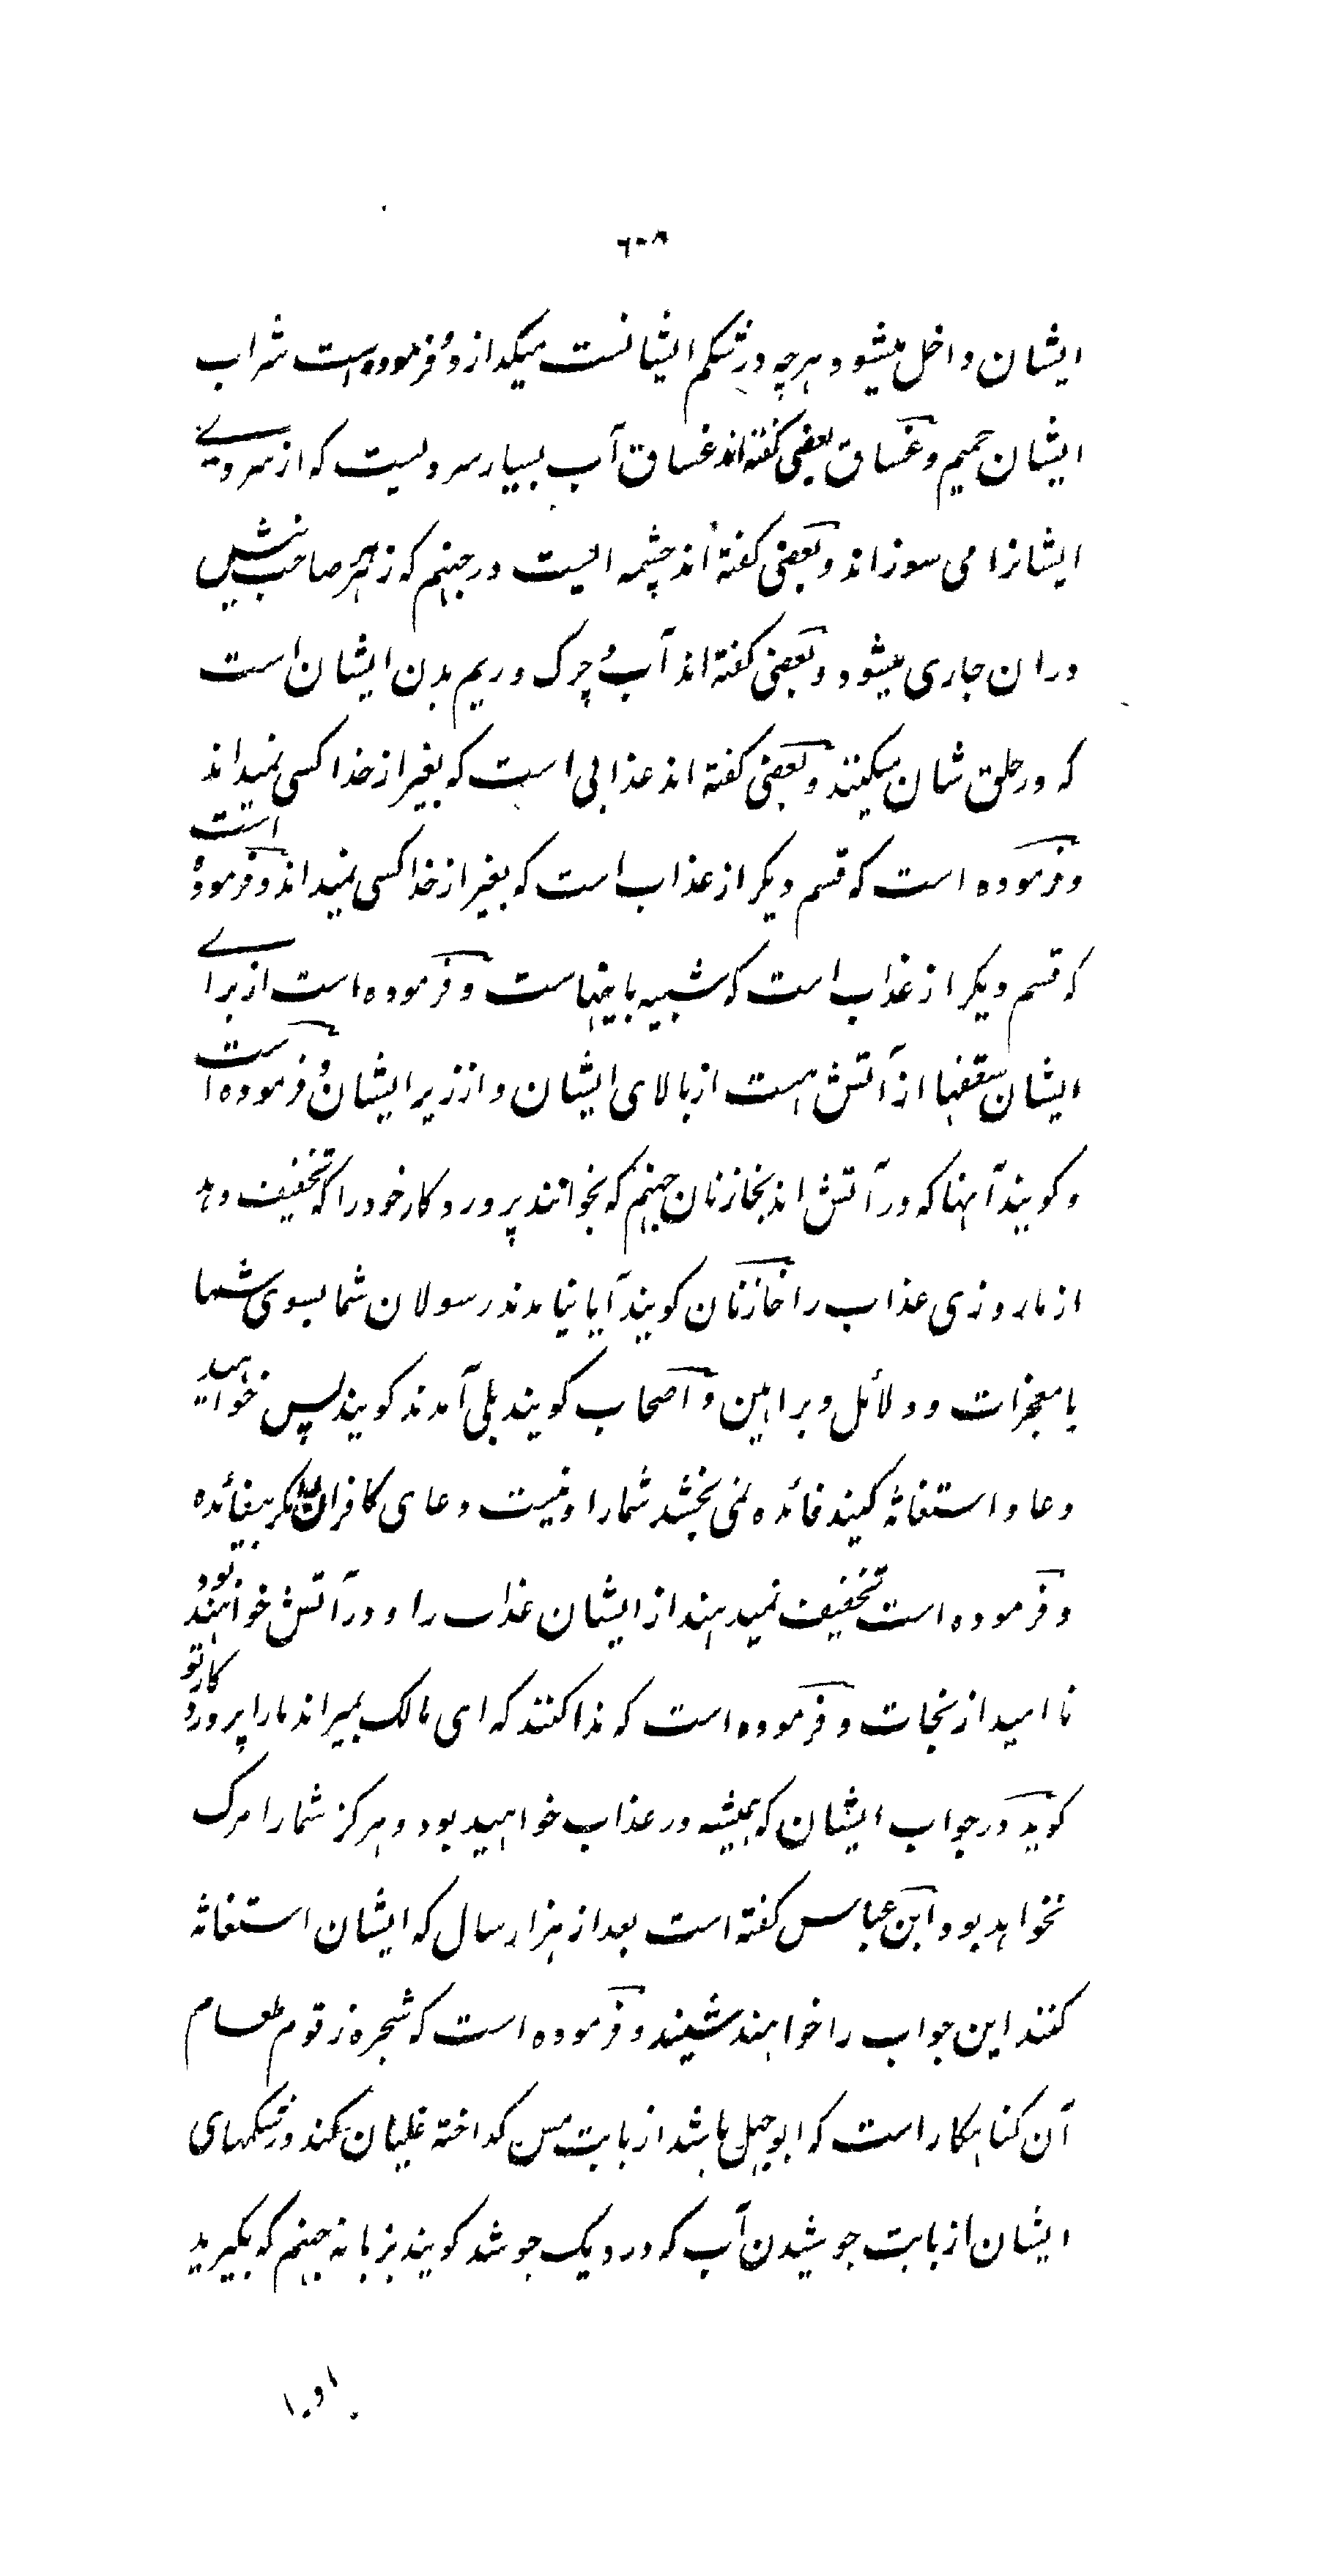 ٦٠٨
ایشان داخل میشود و هرچه در شکم ایشانست میکدازد و فرموده است شراب
ایشان حمیم و غساق بعضی کفته اند غساق آب بسیار سردیست که از سردی
ایشانرا می سوزاند و بعضی کفته اند چشمه ایست در جهنم که زهر هر صاحب نیش
دران جاری میشود و بعضی کفته اند آب و چرک و ریم بدن ایشان است
که در حلق شان میکنند و بعضی کفته اند عذابی است که بغیر از خدا کسی نمیداند
و فرموده است که قسم دیکر از عذاب است که بغیر از خدا کسی نمیداند و فرموده است
که قسم دیکر از عذاب است که شبیه باینهاست و فرموده است از برای
ایشان سقفها از آتش هست از بالای ایشان و از زیر ایشان و فرموده است
و کویند آنها که در آتش اند بخازنان جهنم که بخوانند پروردکار خود را که تخفیف دهد
از ما روزی عذاب را خازنان کویند آیا نیامدند رسولان شما بسوی شما
با معجزات و دلائل و براهین و اصحاب کویند بلی آمدند کویند پس خواهید
دعا و استغاثه کنید فائده نمی بخشد شما را و نیست دعای کافران مکر بیفائده
و فرموده است تخفیف نمیدهند از ایشان عذاب را و در آتش خواهند بود
نا امید از نجات و فرموده است که ندا کنند که ای مالک بمیراند ما را پروردکار تو
کوید در جواب ایشان که همیشه در عذاب خواهید بود و هرکز شما را مرک
نخواهد بود ابن عباس کفته است بعد از هزار سال که ایشان استغاثه
کنند این جواب را خواهند شنید و فرموده است که شجره زقوم طعام
آن کناهکار است که ابوجهل باشد از بابت مس کداخته غلیان کند در شکمهای
ایشان از بابت جوشیدن آب که در دیک جوشد کویند بزبانه جهنم که بکیرید